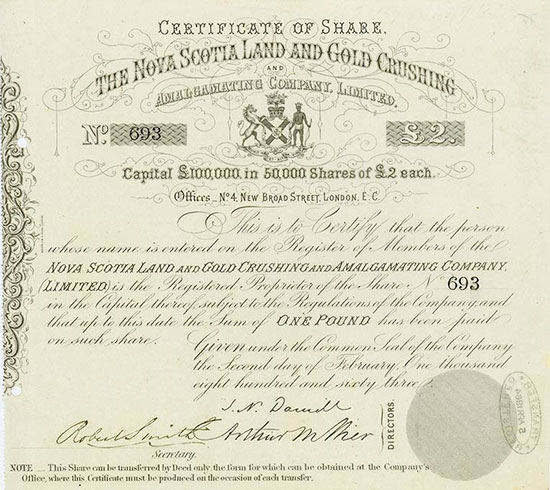 CERTIFICATE OF SHARE.
THE NOVA SCOTIA LAND AND GOLD CRUSHING
AND
AMALGAMATING COMPANY, LIMITED.
No. 693 £2.
Capital £100,000. in 50,000 Shares of £2 each.
Offices _ No 4, NEW BROAD STREET, LONDON, E.C.
This is to Certify that the person
whose name is entered on the Register of Members of the
NOVA SCOTIA LAND AND GOLD CRUSHING AND AMALGAMATING COMPANY,
(LIMITED) is the Registered Proprietor of the Share No 693
in the Capital thereof, subject to the Regulations of the Company, and
that up to this date the Sum of ONE POUND has been paid
on such share.
Given under the Common Seal of the Company
the Second day of February, One thousand
eight hundred and sixty three.
Robert Smith Arthur
Secretary.
DIRECTORS.
NOTE _ This Share can be transferred by Deed only, the form for which can be obtained at the Company's
Office, where this Certificate must be produced on the occasion of each transfer.